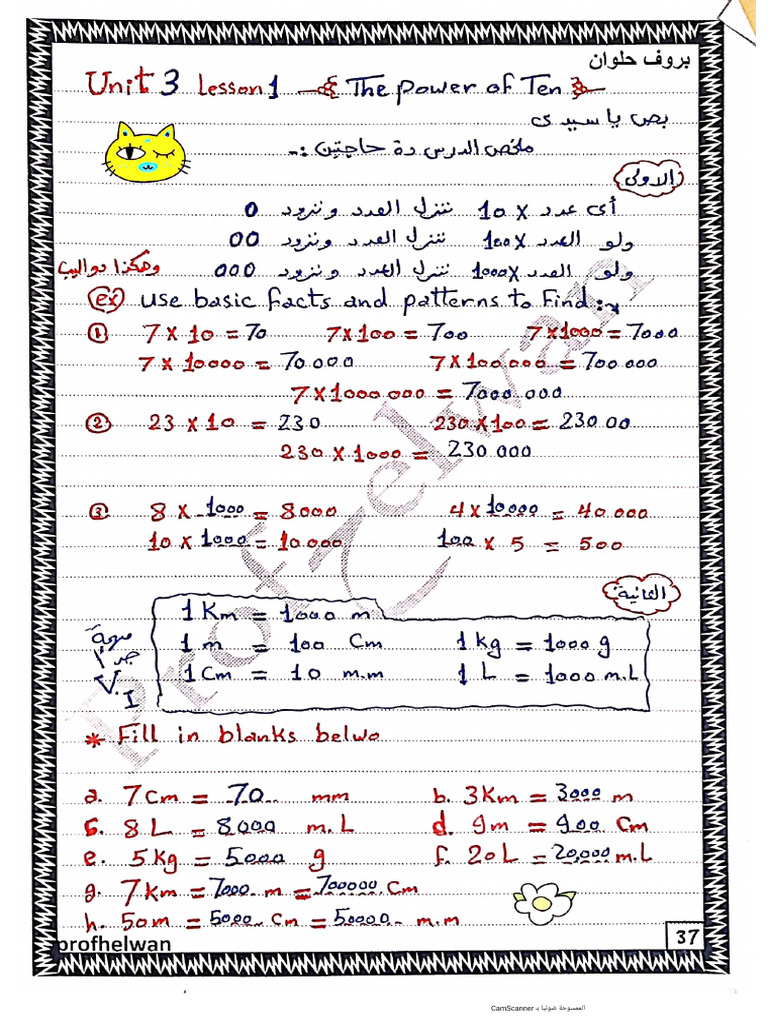 بروف حلوان
Unit 3 Lesson 1 The Power of Ten
بص يا سيدى
ملخص الدرس دة حاجتين :-
الاولى
أى عدد × 10 ننزل العدد ونزود 0
ولو العدد × 100 ننزل العدد ونزود 00
ولو العدد × 1000 ننزل العدد ونزود 000 وهكذا دواليب
ex use basic facts and patterns to Find:
① 7 × 10 = 70 7 × 100 = 700 7 × 1000 = 7000
7 × 10000 = 70.000 7 × 100 000 = 700 000
7 × 1000 000 = 7000 000
② 23 × 10 = 230 230 × 100 = 230 00
230 × 1000 = 230 000
③ 8 × 1000 = 8000 4 × 10000 = 40 000
10 × 1000 = 10 000 100 × 5 = 500
الثانية:
1 Km = 1000 m
مهمة 1 m = 100 Cm 1 kg = 1000 g
جدا V.I 1 Cm = 10 m.m 1 L = 1000 m.L
* Fill in blanks belwo
a. 7 Cm = 70 mm b. 3 Km = 3000 m
c. 8 L = 8000 m.L d. 9 m = 900 Cm
e. 5 Kg = 5000 g f. 20 L = 20,000 m.L
g. 7 Km = 7000 m = 700000 Cm
h. 50 m = 5000 Cm = 50000 m.m
profhelwan
37
Prof helwan
الممسوحة ضوئيا بـ CamScanner